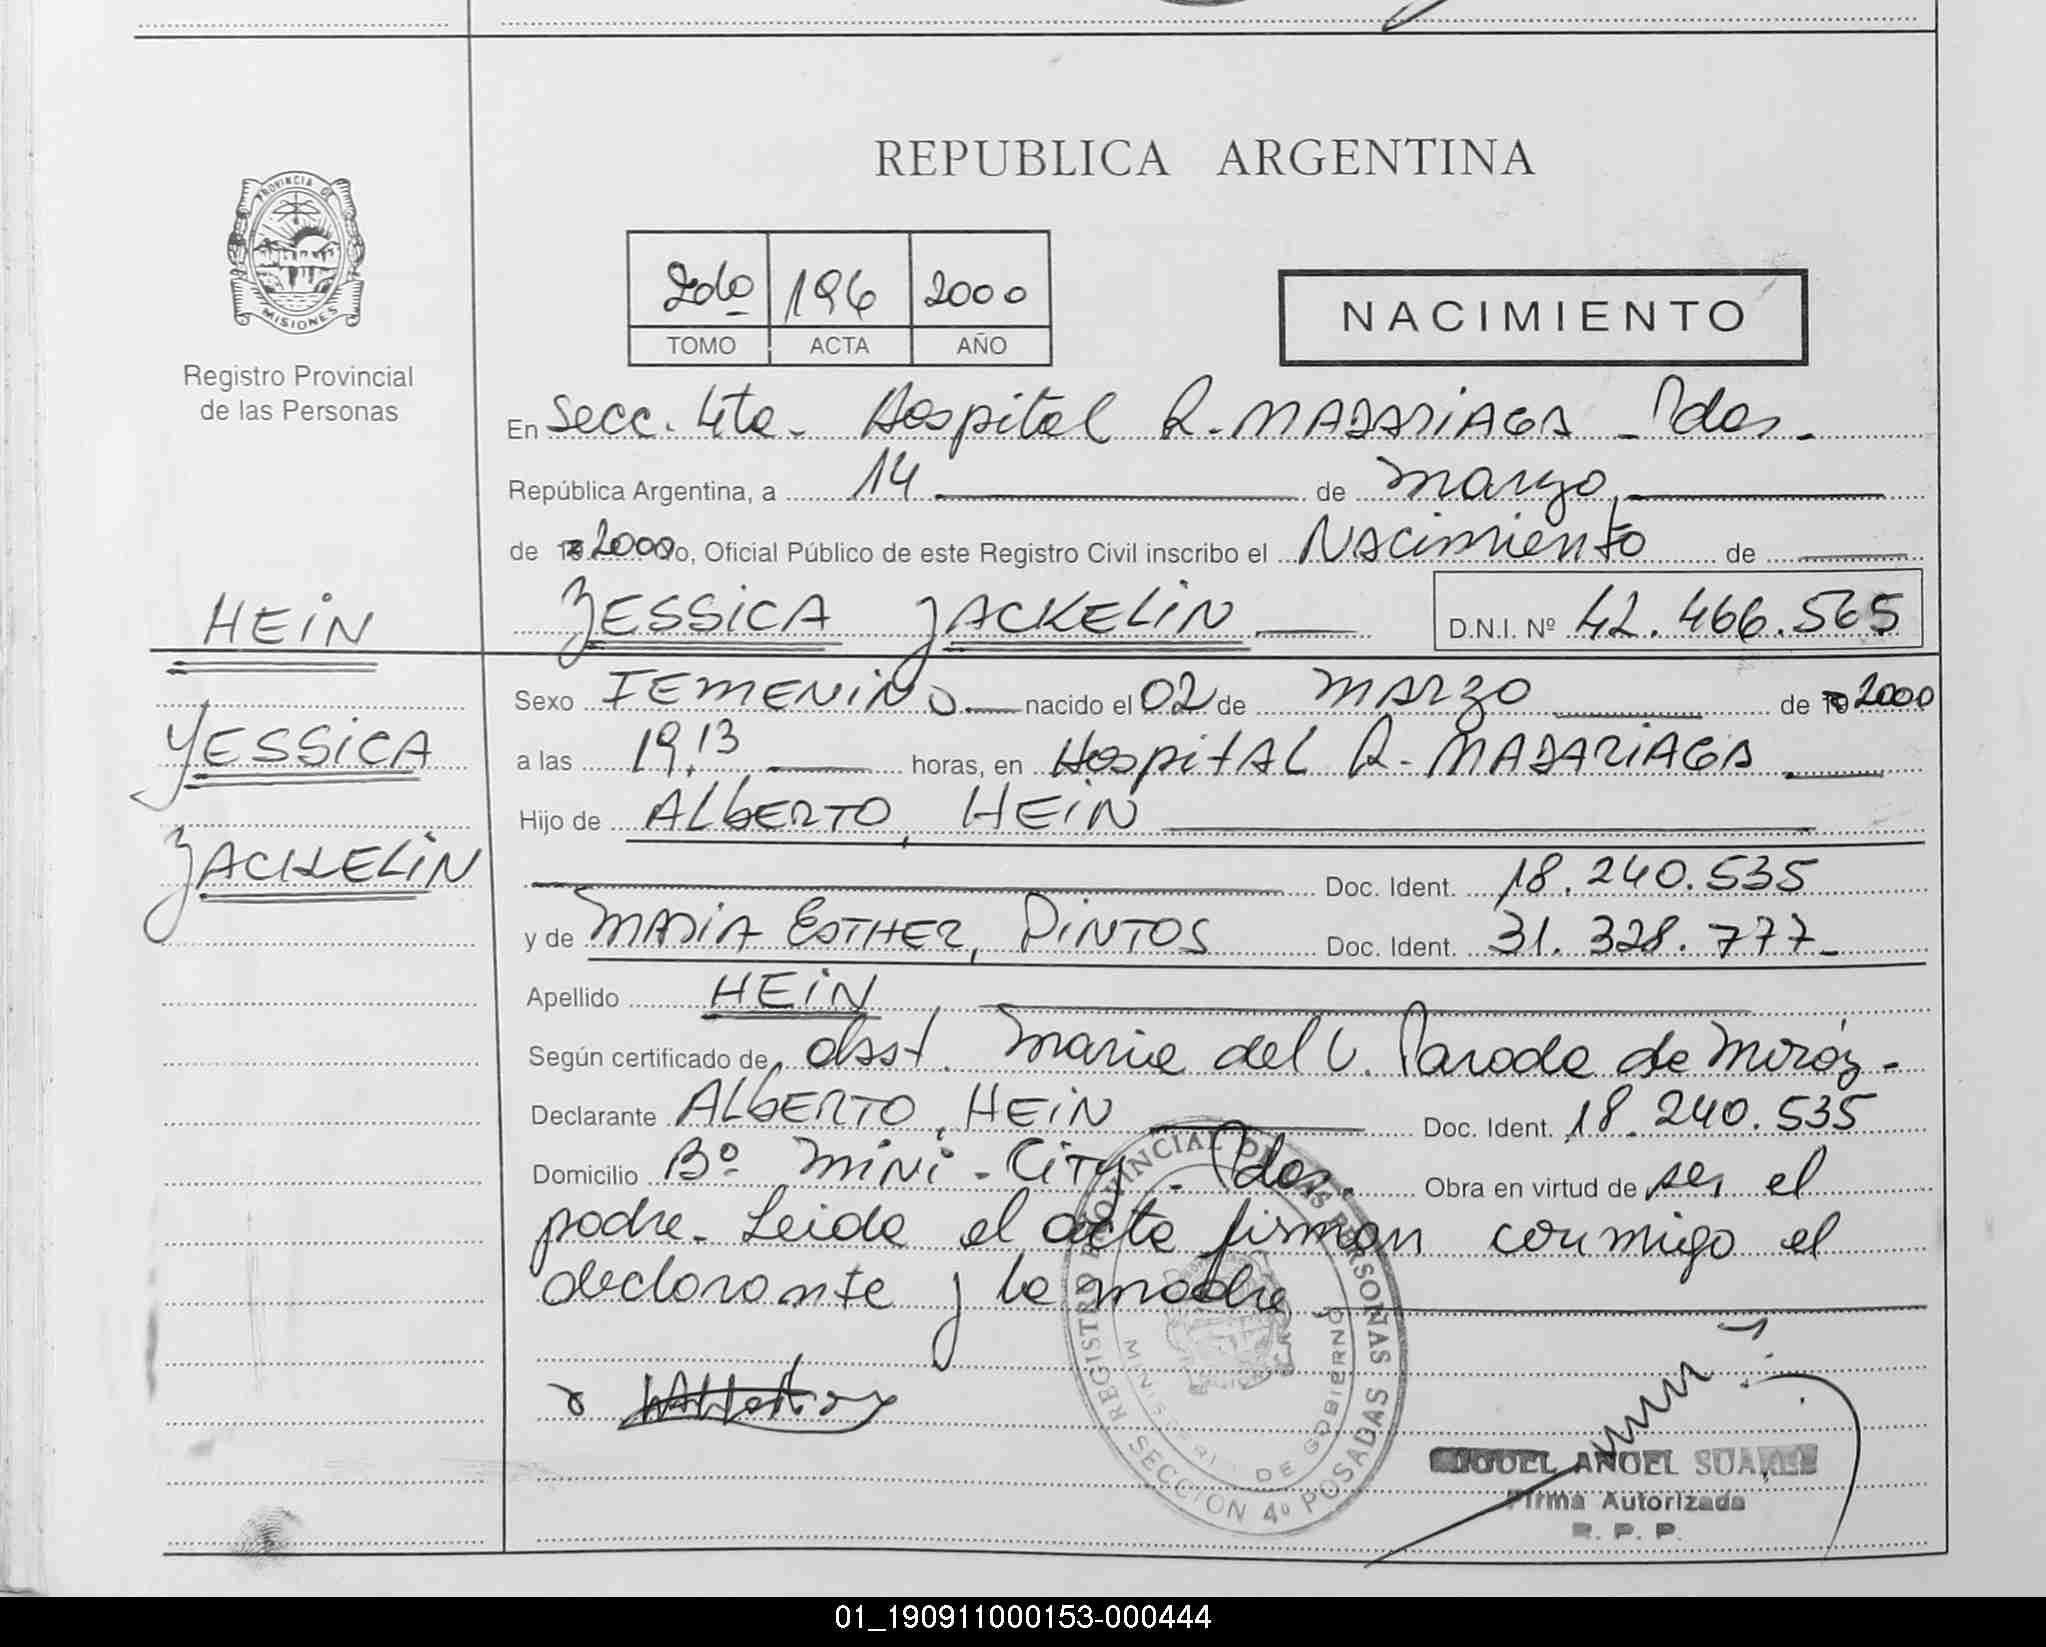 REPUBLICA ARGENTINA
PROVINCIA DE
MISIONES
Registro Provincial
de las Personas
2do 196 2000
TOMO ACTA AÑO
NACIMIENTO
En Secc. 4ta. Hospital R. MADARIAGA - Pdas.
República Argentina, a 14 de marzo
de 2000 Yo, Oficial Público de este Registro Civil inscribo el Nacimiento de
YESSICA JACKELIN D.N.I. Nº 42.466.565
HEIN
YESSICA
JACKELIN
Sexo FEMENINO nacido el 02 de MARZO de 2000
a las 19,13 horas, en HospitAL R. MADARIAGA
Hijo de ALBERTO, HEIN
Doc. Ident. 18.240.535
y de MARIA ESTHER, PINTOS Doc. Ident. 31.328.777
Apellido HEIN
Según certificado de obst. Maria del C. Parode de
Declarante ALBERTO, HEIN Doc. Ident. 18.240.535
Domicilio Bº MINI-CITY - Pdas. Obra en virtud de ser el
padre. Leida el acta firman conmigo el
declarante y la madre
REGISTRO PROVINCIAL DE LAS PERSONAS
MINISTERIO DE GOBIERNO
SECCION 4º POSADAS
MIGUEL ANGEL SUAREZ
Firma Autorizada
R. P. P.
01_190911000153-000444